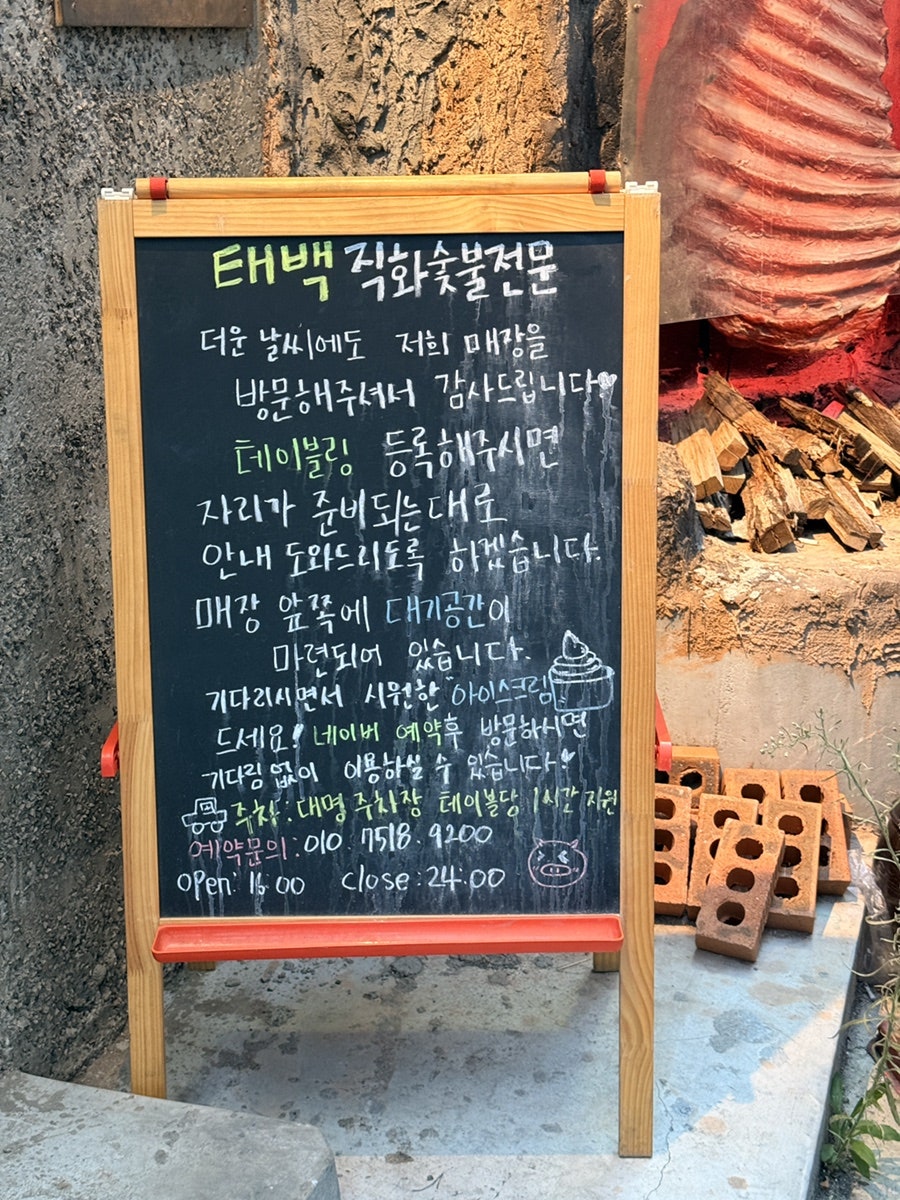 태백 직화숯불전문
더운 날씨에도 저희 매장을
방문해주셔서 감사드립니다
테이블링 등록해주시면
자리가 준비되는대로
안내 도와드리도록 하겠습니다.
매장 앞쪽에 대기공간이
마련되어 있습니다.
기다리시면서 시원한 "아이스크림"
드세요! 네이버 예약후 방문하시면
기다림없이 이용하실 수 있습니다
주차: 대명 주차장 테이블당 1시간 지원
예약문의: 010. 7518. 9200
open: 16:00 close: 24:00